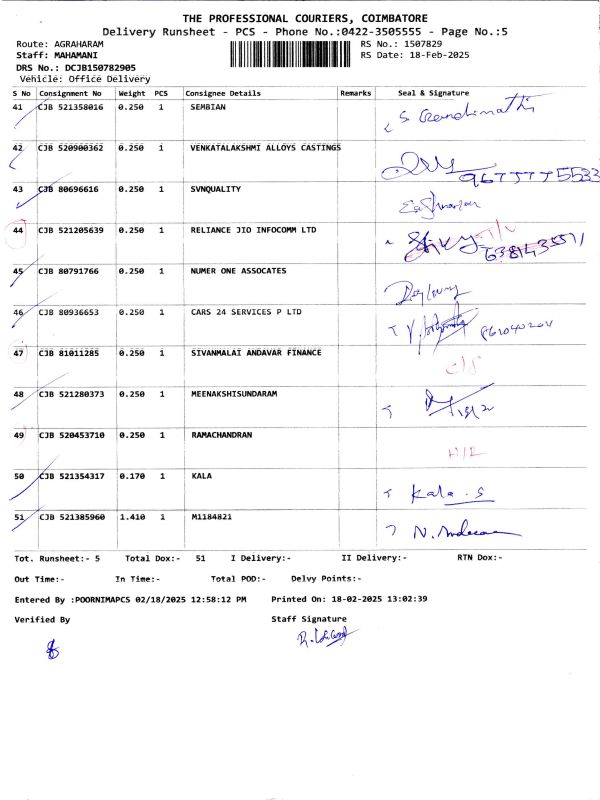 THE PROFESSIONAL COURIERS, COIMBATORE
Delivery Runsheet - PCS - Phone No.:0422-3505555 - Page No.:5
Route: AGRAHARAM RS No.: 1507829
Staff: MAHAMANI RS Date: 18-Feb-2025
DRS No.: DCJB150782905
Vehicle: Office Delivery
S No Consignment No Weight PCS Consignee Details Remarks Seal & Signature
41 CJB 521358016 0.250 1 SEMBIAN
42 CJB 520900362 0.250 1 VENKATALAKSHMI ALLOYS CASTINGS
43 CJB 80696616 0.250 1 SVNQUALITY
44 CJB 521205639 0.250 1 RELIANCE JIO INFOCOMM LTD
45 CJB 80791766 0.250 1 NUMER ONE ASSOCATES
46 CJB 80936653 0.250 1 CARS 24 SERVICES P LTD
47 CJB 81011285 0.250 1 SIVANMALAI ANDAVAR FINANCE
48 CJB 521280373 0.250 1 MEENAKSHISUNDARAM
49 CJB 520453710 0.250 1 RAMACHANDRAN
50 CJB 521354317 0.170 1 KALA Kala . S
51 CJB 521385960 1.410 1 M1184821
Tot. Runsheet:- 5 Total Dox:- 51 I Delivery:- II Delivery:- RTN Dox:-
Out Time:- In Time:- Total POD:- Delvy Points:-
Entered By :POORNIMAPCS 02/18/2025 12:58:12 PM Printed On: 18-02-2025 13:02:39
Verified By Staff Signature